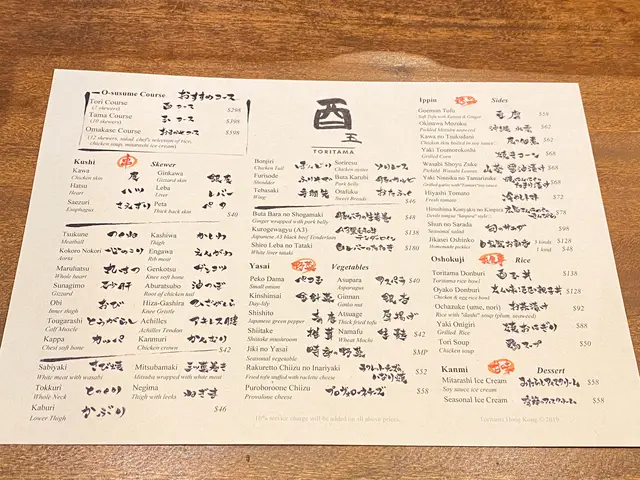 O-susume Course おすすめコース
Tori Course 酉 コース
(7 skewers) $298
Tama Course 玉 コース
(10 skewers) $398
Omakase Course おまかせコース $598
(12 skewers, salad, chef's selection of rice,
chicken soup, mitarashi ice cream)
Kushi 串 Skewer
Kawa
Chicken skin
Ginkawa 銀皮
Gizzard skin
Hatsu ハツ
Heart
Leba レバー
Liver
Saezuri さえずり
Esophagus
Peta ペタ
Thick back skin $40
Tsukune つくね
Meatball
Kashiwa かしわ
Thigh
Kokoro Nokori 心のこり
Aorta
Engawa えんがわ
Rib meat
Maruhatsu 丸はつ
Whole heart
Genkotsu ゲンコツ
Knee soft bone
Sunagimo 砂肝
Gizzard
Aburatsubo 油つぼ
Root of chicken tail
Obi おび
Inner thigh
Hiza-Gashira ひざがしら
Knee Gristle
Tougarashi とうがらし
Calf Muscle
Achilles アキレス腱
Achilles Tendon
Kappa カッパ
Chest soft bone
Kanmuri かんむり
Chicken crown $42
Sabiyaki さび焼
White meat with wasabi
Mitsubamaki 三つ葉巻き
Mitsuba wrapped with white meat
Tokkuri とっくり
Whole Neck
Negima ねぎま
Thigh with leeks
Kaburi かぶり
Lower Thigh $46
酉玉
TORITAMA
Bonjiri ぼんじり
Chicken Tail
Soriresu ソリレース
Oyster chicken
Furisode ふりそで
Shoulder
Buta Karubi 豚カルビ
Pork belly
Tebasaki 手羽先
Wing
Otafuku おたふく
Sweet Breads $46
Buta Bara no Shogamaki 豚バラの生姜巻 $48
Ginger wrapped with pork belly
Kurogewagyu (A3)
Japanese A3 black beef Tenderloin $180
Shiro Leba no Tataki 白レバーのたたき $180
White liver tataki
Yasai 野菜 Vegetables
Peko Dama ペコ玉
Small onion
Asupara アスパラ $40
Asparagus
Kinshinsai 金針菜
Day-lily
Ginnan 銀杏
Gingko
Shishito
Japanese green pepper
Atsuage 厚揚げ
Thick fried tofu
Shiitake 椎茸
Shiitake mushroom
Namafu 生麩 $42
Wheat Mochi
Jiki no Yasai 時季の野菜 $MP
Seasonal vegetable
Rakuretto Chiizu no Inariyaki ラクレットチーズのいなり焼 $52
Fried tofu stuffed with raclette cheese
Puroboroone Chiizu プロヴォローネチーズ $58
Provalone cheese
10% service charge will be added on all above prices.
Ippin 逸品 Sides
Goemon Tufu 豆腐 $58
Soft Tofu with Kanzuri & Ginger
Okinawa Mozuku 沖縄 水雲 $62
Pickled Mozuku seaweed
Kawa no Tsukudani 皮の佃煮 $62
Chicken skin boiled in soy sauce
Yaki Toumotorokoshi 焼きコーン $68
Grilled Corn
Wasabi Shoyu Zuke 山葵醤油漬け $68
Pickled Wasabi Leaves
Yaki Ninniku no Tamarizuke $68
Grilled garlic with "Tamari"soy sauce
Hiyashi Tomato 冷やしトマト $72
Fresh tomato
Himeshima Konjyaku no Kimpira $78
Devils tongue "kinpira" style
Shun no Sarada 旬のサラダ $98
Seasonal salad
Jikasei Oshinko 自家製お新香 1 kinds $28
Homemade Pickles 3 kinds $48
Oshokuji お食事 Rice
Toritama Donburi 酉玉丼 $138
Toritama Don
Oyako Donburi $128
Chicken & egg rice bowl
Ochazuke (ume, nori) お茶漬け $92
Rice with "dashi" soup (plum, seaweed)
Yaki Onigiri 焼おにぎり $88
Grilled Rice
Tori Soup 鶏スープ $50
Chicken Soup
Kanmi 甘味 Dessert
Mitarashi Ice Cream みたらしアイスクリーム $58
Soy sauce ice cream
Seasonal Ice Cream 季節のアイスクリーム $58
Toritama Hong Kong ©2019